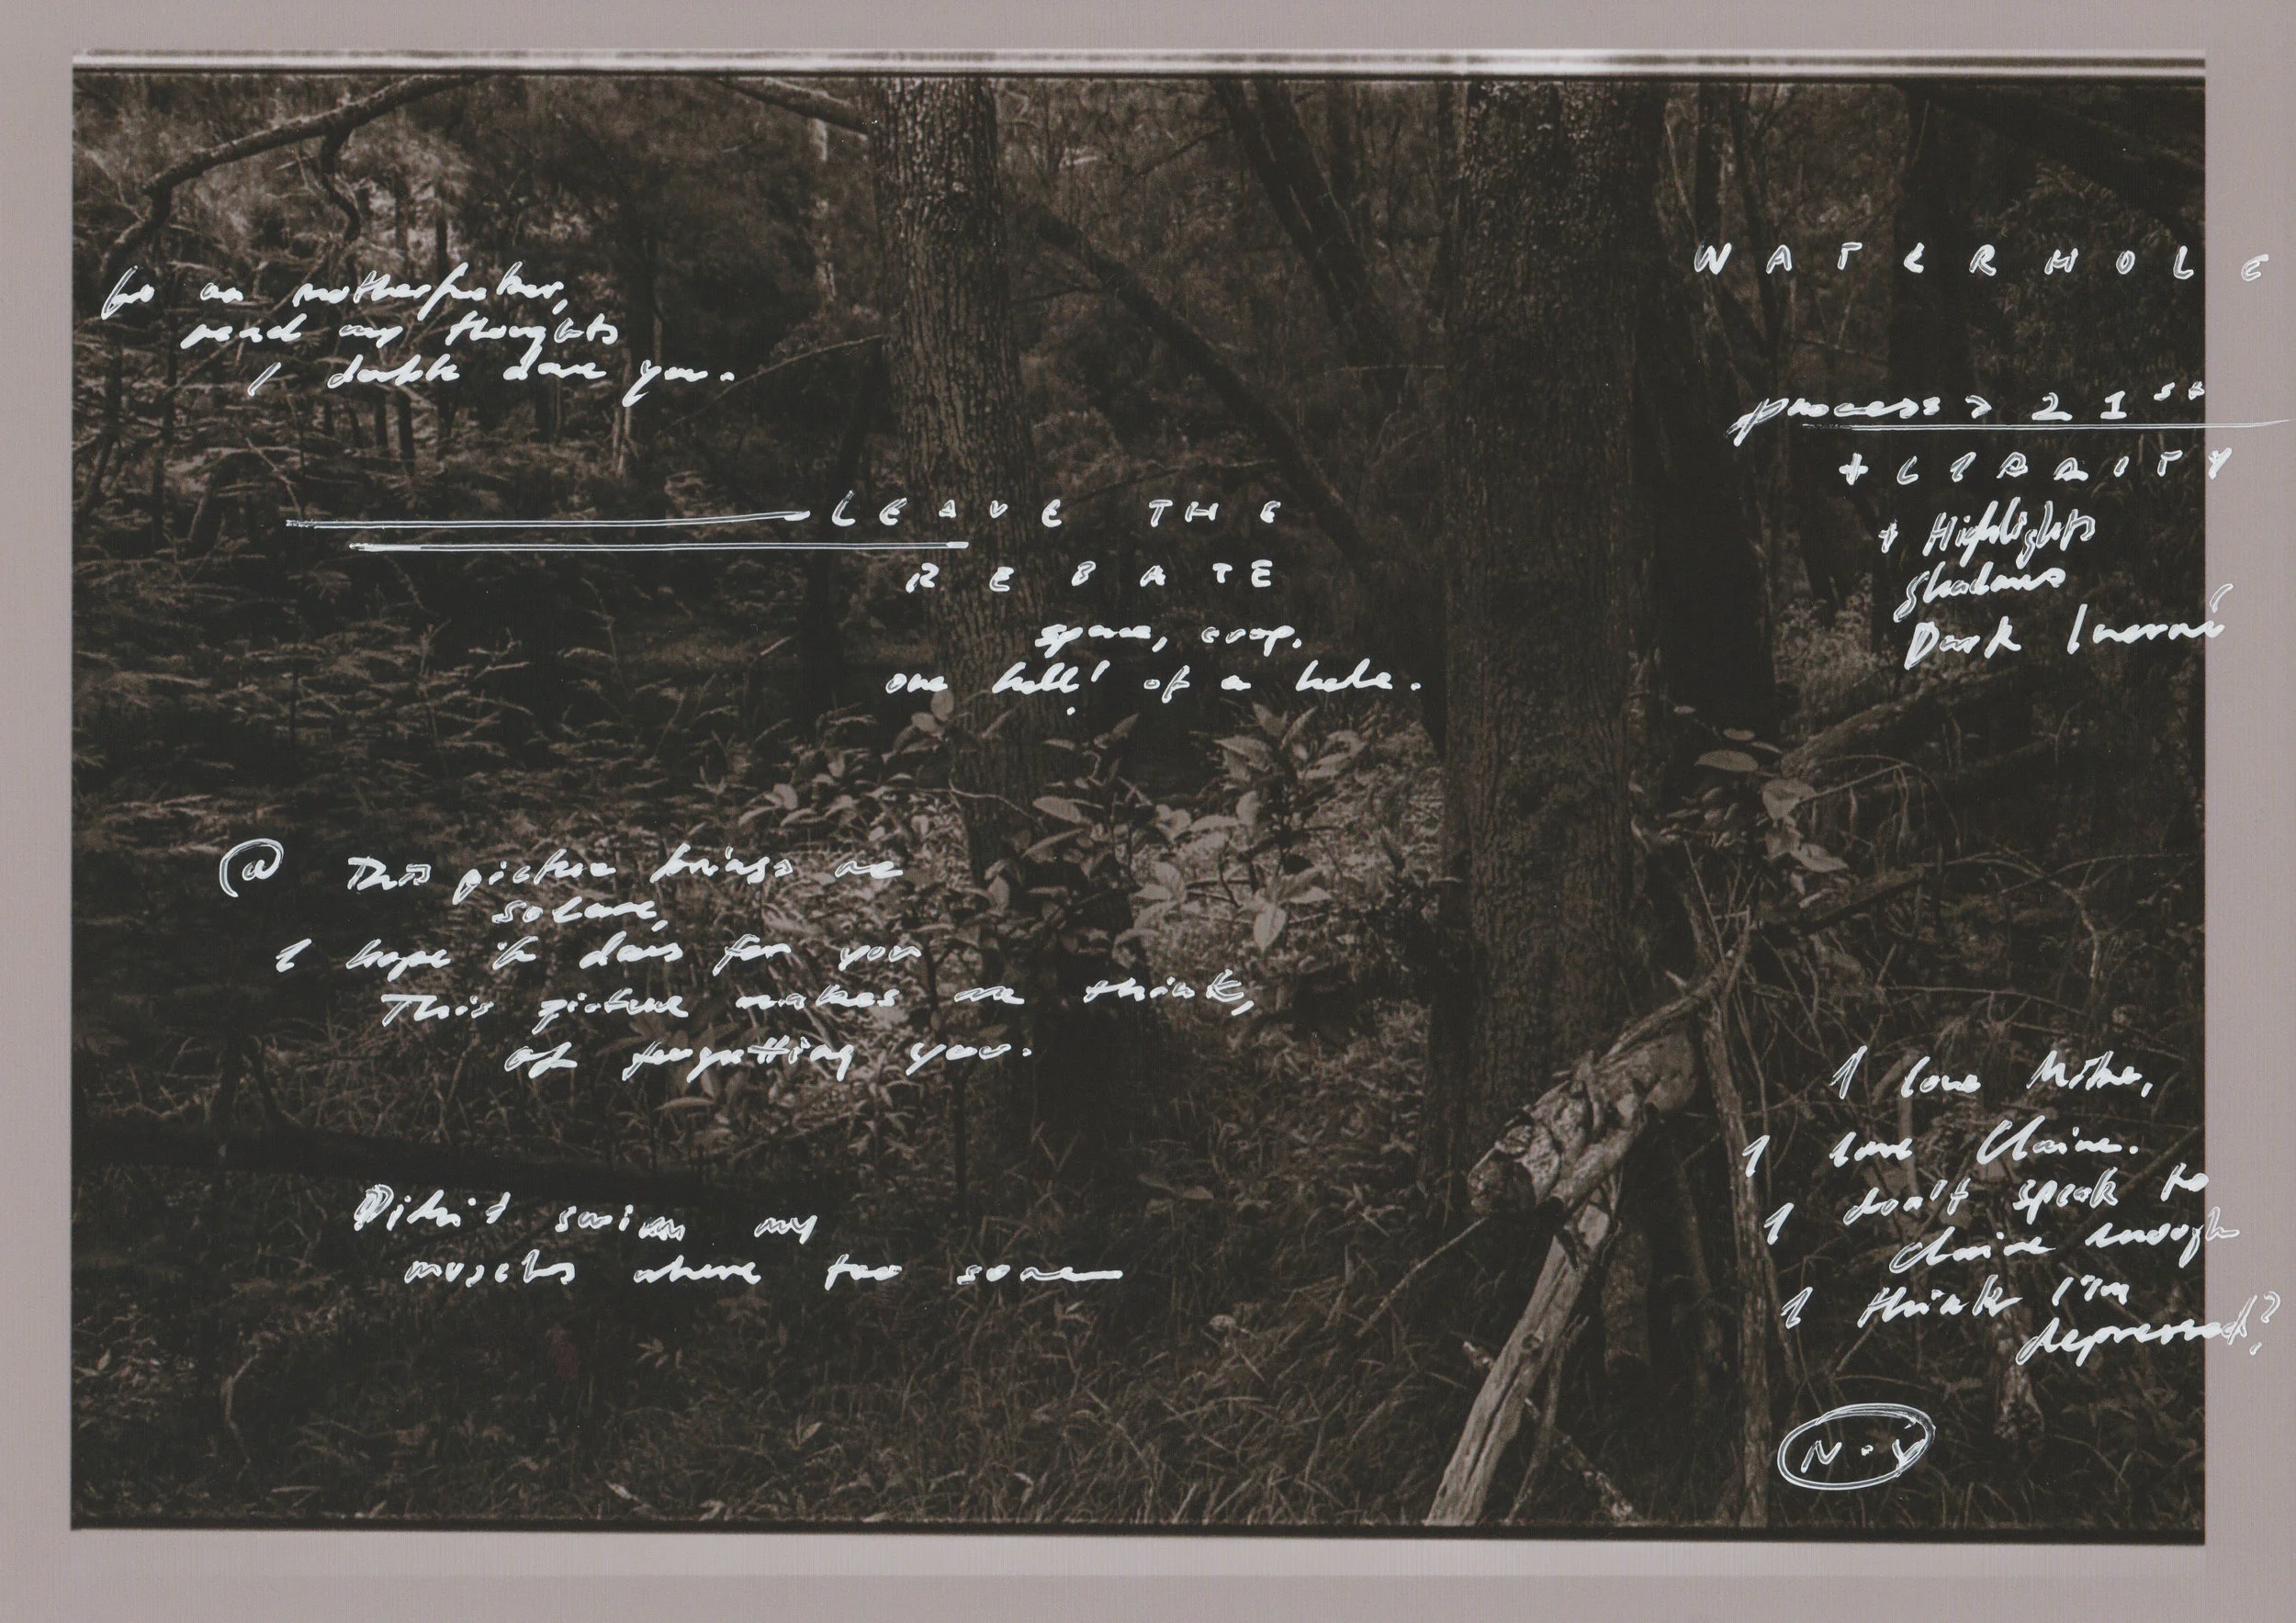 Go on motherfucker,
read my thoughts
I double dare you.
LEAVE THE
REBATE
space, crop.
one hell! of a hole.
@ This picture brings me
solace,
I hope it does for you
This picture makes me think,
of forgetting you.
Didn't swim my
muscles where too sore
WATERHOLE
process > 21st
+ CLARITY
+ Highlights
Shadows
Dark
I love Mother,
I love Claire.
I don't speak to
Claire enough
I think I'm
depressed?
N.Y